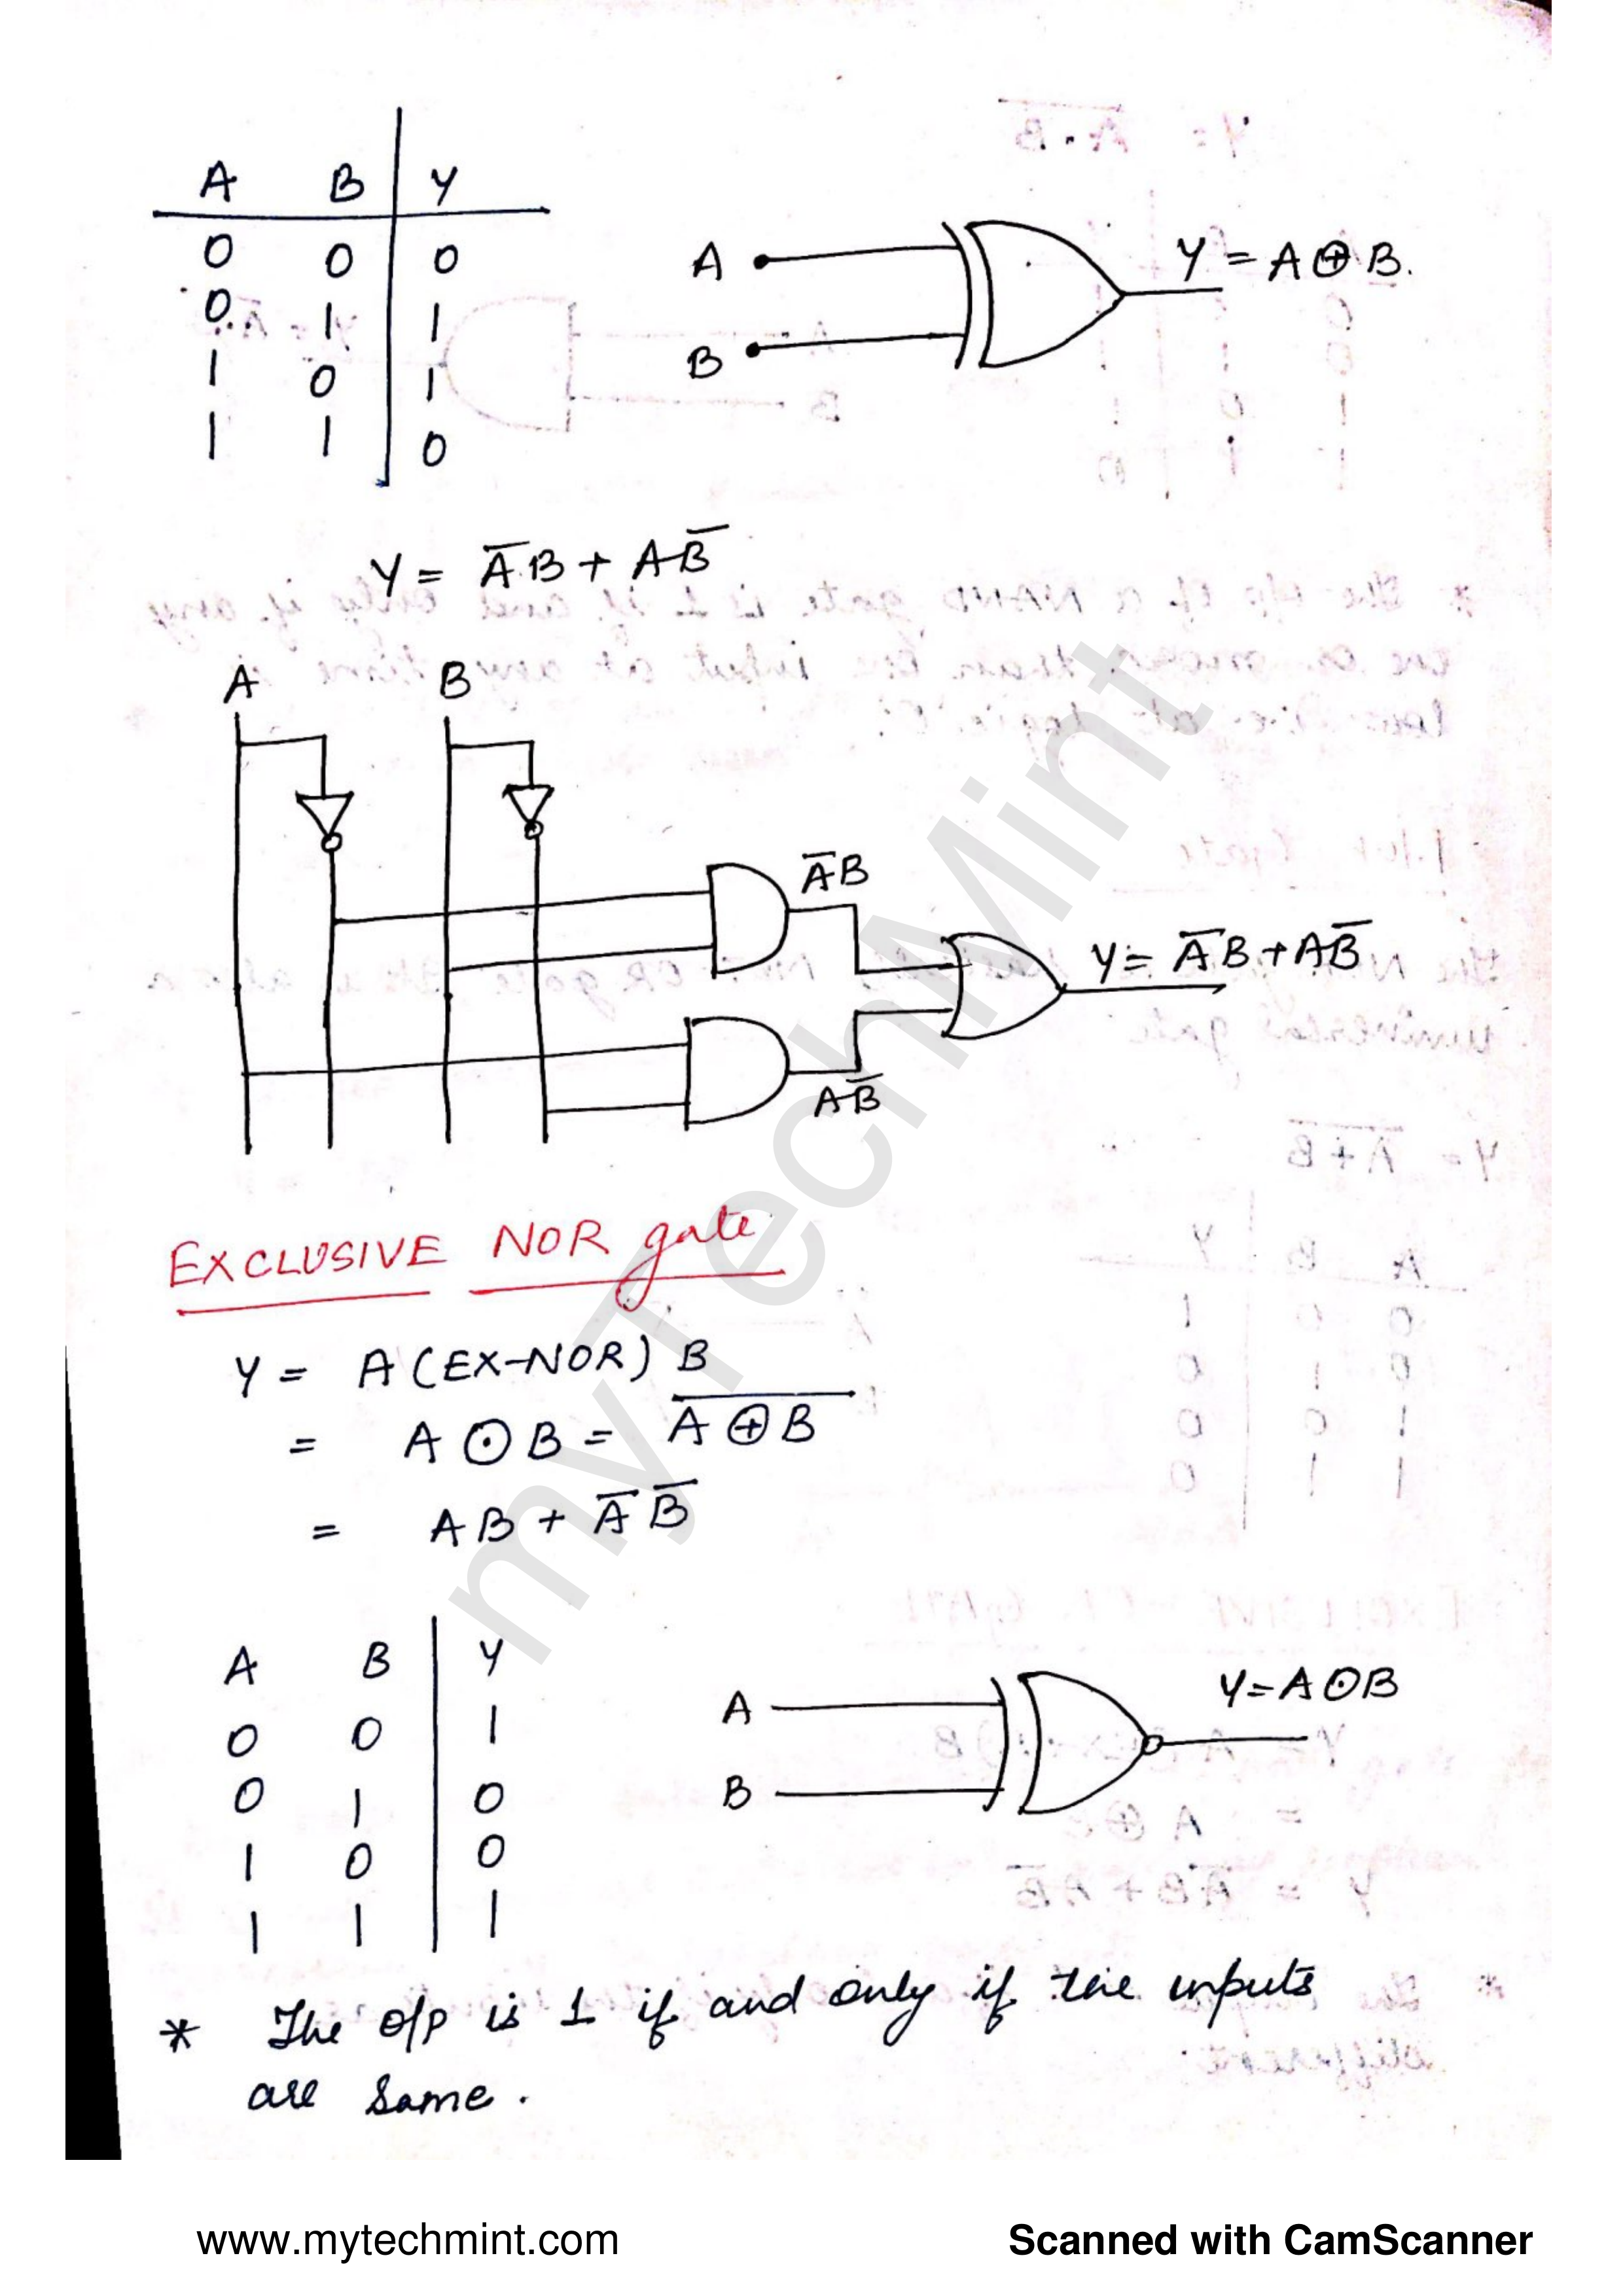 A B Y
0 0 0
0 1 1
1 0 1
1 1 0
A
B
Y = A ⊕ B.
Y = A̅B + AB̅
A B
A̅B
Y = A̅B + AB̅
AB̅
EXCLUSIVE NOR gate
Y = A (EX-NOR) B
= A ⊙ B = \overline{A ⊕ B}
= AB + A̅ B̅
A B Y
0 0 1
0 1 0
1 0 0
1 1 1
A
B
Y = A ⊙ B
* The o/p is 1 if and only if the inputs
are same.
myTechMint
www.mytechmint.com
Scanned with CamScanner